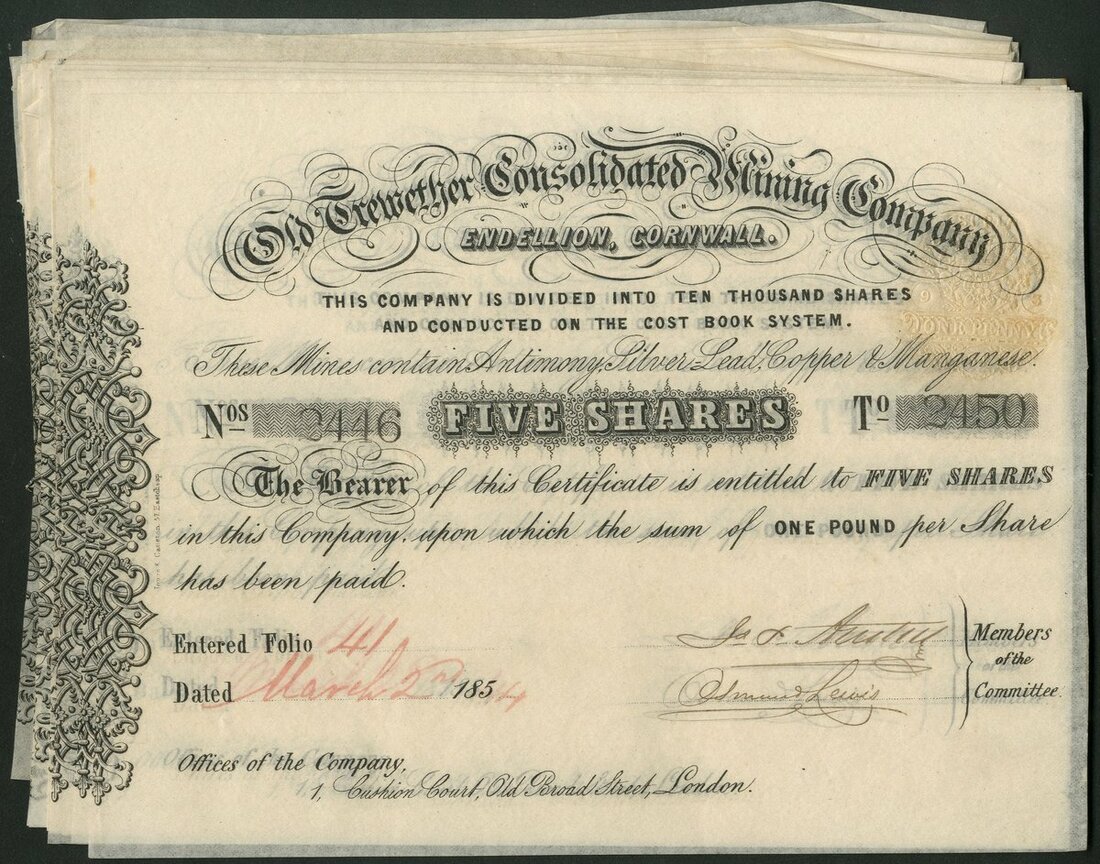 Old Trewether Consolidated Mining Company
ENDELLION, CORNWALL.
THIS COMPANY IS DIVIDED INTO TEN THOUSAND SHARES
AND CONDUCTED ON THE COST BOOK SYSTEM.
ONE PENNY
These Mines contain Antimony, Silver Lead, Copper & Manganese.
Nos 2446 FIVE SHARES To 2450
The Bearer of this Certificate is entitled to FIVE SHARES
in this Company, upon which the sum of ONE POUND per Share
has been paid.
Entered Folio 41
Dated March 2nd 1854
Edmund Lewis
Members
of the
Committee.
Offices of the Company,
1, Cushion Court, Old Broad Street, London.